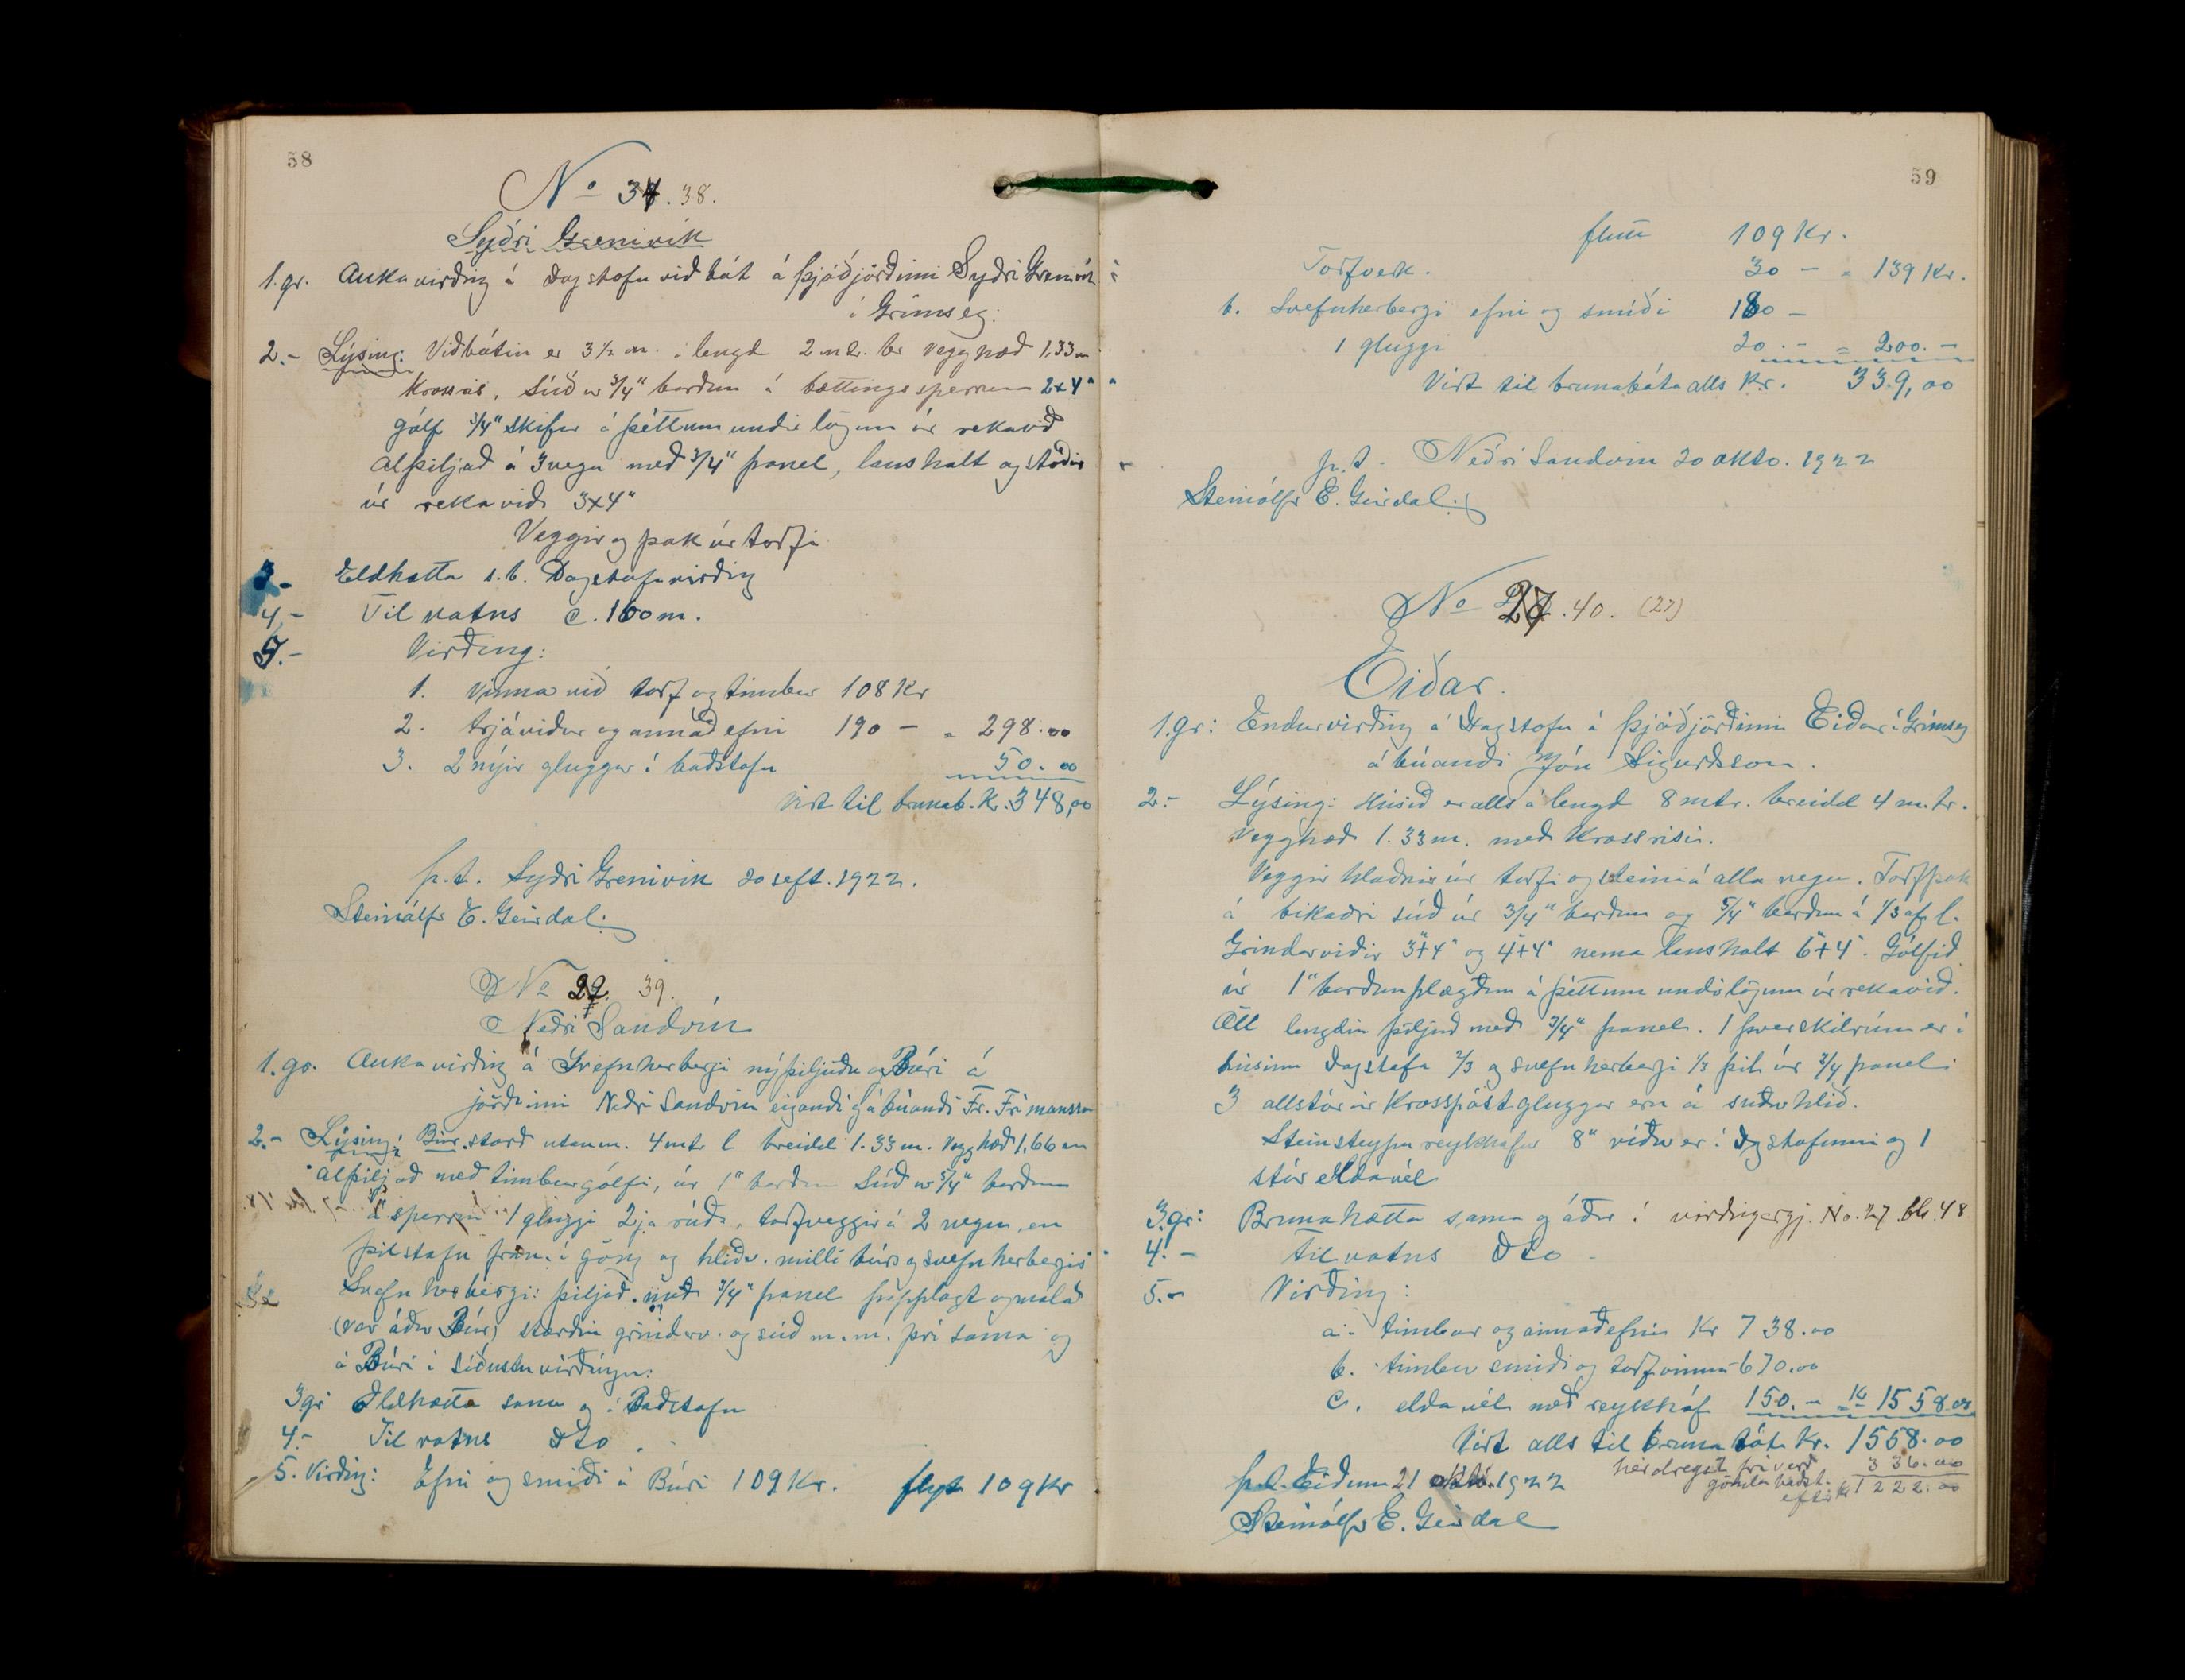 58
No 34. 38.
Syðri Grenivík
1.gr. Aukavirðing á Dagstofu viðbót á þjóðjörðinni Syðri Grenivík
í Grímsey:
2.- Lýsing: Viðbótin er 3 1/2 m. á lengd 2 mtr. br vegghæð 1,33 m
Krossris. Súð úr 3/4" borðum á battingssperrum 2x4"
gólf 3/4" skífur á þéttum undirlögum úr rekavið
alþiljað á 3 vegu með 3/4" panel, lausholt og stoðir
úr rekavið 3x4"
Veggir og þak úr torfi
3.- Eldhætta s.b. Dagstofuvirðing
4.- Til vatns c. 160 m.
5.- Virðing:
1. Vinna við torf og timbur 108 Kr
2. trjáviður og annað efni 190 - = 298.00
3. 2 nýir gluggar í baðstofu 50.00
Virt til brunab. Kr. 348,00
p.t. Syðri Grenivík 20 sept. 1922.
Steinólfr E. Geirdal.
No 22. 39.
Neðri Sandvík
1.gr. Aukavirðing á Svefnherbergi nýþiljuðu og Búri á
jörðinni Neðri Sandvík eigandi og ábúandi Fr. Frímansson
2.- Lýsing: Búr. stærð utanm. 4 mtr l breidd 1.33 m. vegghæð 1,66 m
alþiljað með timburgólfi, úr 1" borðum Súð úr 3/4" borðum
á sperrum 1 gluggi 2ja rúðu, torfveggir á 2 vegu, en
þilstafn fram í göng og hliðv. milli búrs og svefnherbergis
Svefnherbergi: þiljað með 3/4" panel málað
(var áður Búr) stærðin grindarv. og súð m.m. því sama og
á Búri í síðustu virðingu:
3gr Eldhætta sama og í Baðstofu
4.- Til vatns dto.
5. Virðing: Efni og smíði á Búri 109 Kr. flyt 109 Kr
59
flutt 109 Kr.
Torfverk. 30 - = 139 Kr.
b. Svefnherbergi efni og smíði 180 -
1 gluggi 20.- = 200.-
Virt til brunabóta alls Kr. 339,00
p.t. Neðri Sandvík 20 okto. 1922
Steinólfr E. Geirdal.
No 27. 40. (27)
Eiðar.
1.gr: Endurvirðing á Dagstofu á þjóðjörðinni Eiðar í Grímsey
ábúandi Jón Sigurðsson.
2.- Lýsing: Húsið er alls á lengd 8 mtr. breidd 4 m.tr.
vegghæð 1.33 m. með Krossrisi.
Veggir hlaðnir úr torfi og steini á alla vegu. Torfþak
á bikaðri súð úr 3/4" borðum og 5/4" borðum á 1/3 af l.
Grindarviðir 3"+4" og 4"+4" nema lausholt 6"+4". Gólfið
úr 1" borðum plægðum á þéttum undirlögum úr rekavið.
Öll lengdin þiljuð með 3/4" panel. 1 þverskilrúm er í
húsinu Dagstofa 2/3 og svefnherbergi 1/3 þil úr 3/4 panel.
3 allstórir Krosspóstgluggar eru á suðurhlið.
Steinsteyptur reykháfur 8" víður er í Dagstofunni og 1
stór eldavél
3.gr: Brunahætta sama og áður í virðingargj. No. 27. bls. 48
4.- Til vatns dto -
5.- Virðing:
a. timbur og annað efni Kr 738.00
b. timbur smíði og torfvinna - 670.00
c. eldavél með reykháf 150.- = Kr 1558.00
Virt alls til brunabóta Kr. 1558.00
hér dregst frá verð 336.00
gömlu baðst.
eftir Kr 1222.00
p.t. Eiðum 21 okto. 1922
Steinólfr E. Geirdal